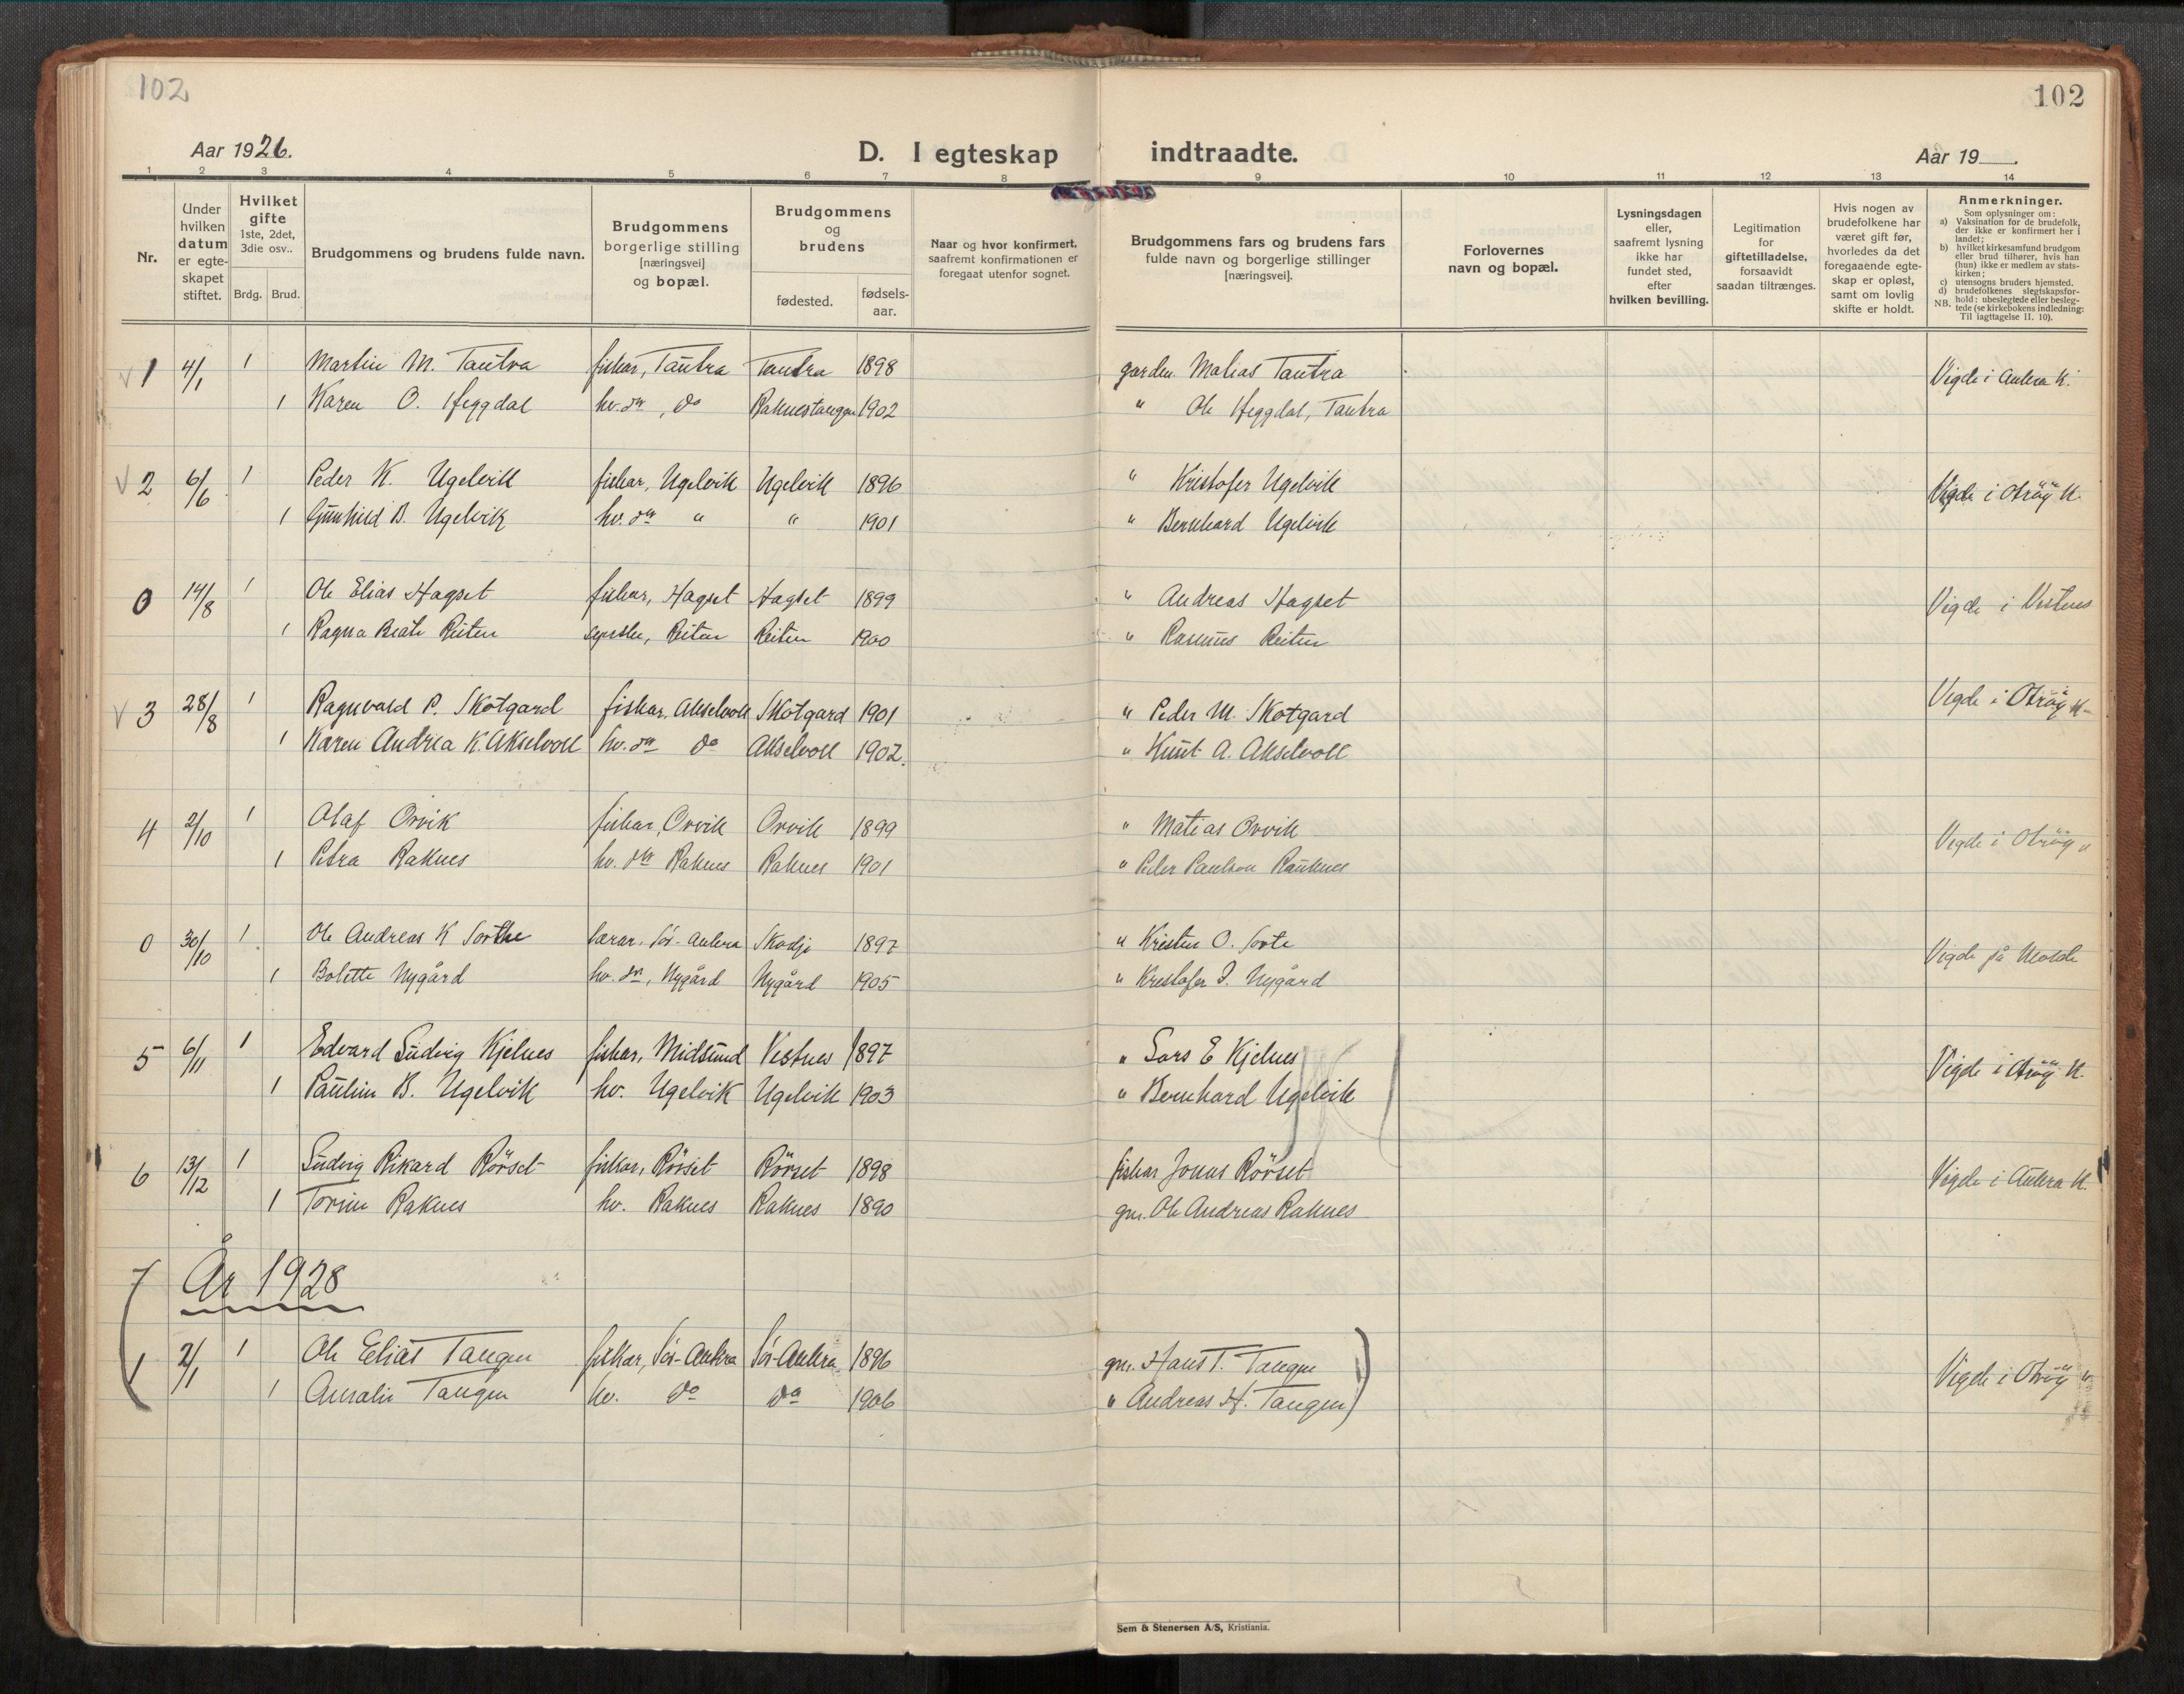 102
102
Aar 1926.
D. I egteskap indtraadte.
Aar 19
1 2 3 4 5 6 7 8 9 10 11 12 13 14
Nr.
Under hvilken datum er egte-skapet stiftet.
Hvilket gifte 1ste, 2det, 3die osv..
Brdg. Brud.
Brudgommens og brudens fulde navn.
Brudgommens borgerlige stilling [næringsvei] og bopæl.
Brudgommens og brudens
fødested.
fødsels-aar.
Naar og hvor konfirmert, saafremt konfirmationen er foregaat utenfor sognet.
Brudgommens fars og brudens fars fulde navn og borgerlige stillinger [næringsvei].
Forlovernes navn og bopæl.
Lysningsdagen eller, saafremt lysning ikke har fundet sted, efter hvilken bevilling.
Legitimation for giftetilladelse, forsaavidt saadan tiltrænges.
Hvis nogen av brudefolkene har været gift før, hvorledes da det foregaaende egte-skap er opløst, samt om lovlig skifte er holdt.
Anmerkninger.
Som oplysninger om:
a) Vaksination for de brudefolk, der ikke er konfirmert her i landet;
b) hvilket kirkesamfund brudgom eller brud tilhører, hvis han (hun) ikke er medlem av stats-kirken;
c) utensogns bruders hjemsted.
d) brudefolkenes slegtskapsfor-hold: ubeslegtede eller besleg-tede (se kirkebokens indledning:
NB. Til iagttagelse II. 10).
1 4/1 1 Martin M. Tautra fiskar, Tautra Tautra 1898 garden. Matias Tautra Vigde i Aukra K.
1 Karen O. Heggdal hv. dtr, do Raknestangen 1902 " Ole Heggdal, Tautra
2 6/6 1 Peder K. Ugelvik fiskar, Ugelvik Ugelvik 1896 " Kristofer Ugelvik Vigde i Otröy K.
1 Gunhild B. Ugelvik hv. dtr " " 1901 " Bernhard Ugelvik
0 14/8 1 Ole Elias Hagset fiskar, Hagset Hagset 1899 " Andreas Hagset Vigde i Vestnes
1 Ragna Beate Reiten syerske, Reiten Reiten 1900 " Rasmus Reiten
3 28/8 1 Ragnvald P. Skotgard fiskar, Akselvoll Skotgard 1901 " Peder M. Skotgard Vigde i Otröy K.
1 Karen Andrea K. Akselvoll hv. dtr do Akselvoll 1902. " Knut A. Akselvoll
4 2/10 1 Olaf Orvik fiskar, Orvik Orvik 1899 " Matias Orvik Vigde i Otröy "
1 Petra Raknes hv. dtr Raknes Raknes 1901 " Peder Paulson Rauknes
0 30/10 1 Ole Andreas K Sorthe lærar, Sör-Aukra Skodje 1897 " Kristen O. Sorte Vigde på Molde
1 Bolette Nygård hv. dtr, Nygård Nygård 1905 " Kristofer I. Nygård
5 6/11 1 Edvard Ludvig Kjelnes fiskar, Midsund Vestnes 1897 " Lars E Kjelnes Vigde i Otröy K.
1 Pauline B. Ugelvik hv. Ugelvik Ugelvik 1903 " Bernhard Ugelvik
6 13/12 1 Ludvig Rikard Rörset fiskar, Rörset Rörset 1898 fiskar Jonas Rörset Vigde i Aukra K.
1 Torine Raknes hv. Raknes Raknes 1890 gm. Ole Andreas Raknes
7 År 1928
1 2/1 1 Ole Elias Tangen fiskar, Sör-Aukra Sör-Aukra 1896 gm. Hans T. Tangen Vigde i Otröy "
1 Auralie Tangen hv. do do 1906 " Andreas H. Tangen
Sem & Stenersen A/S, Kristiania.